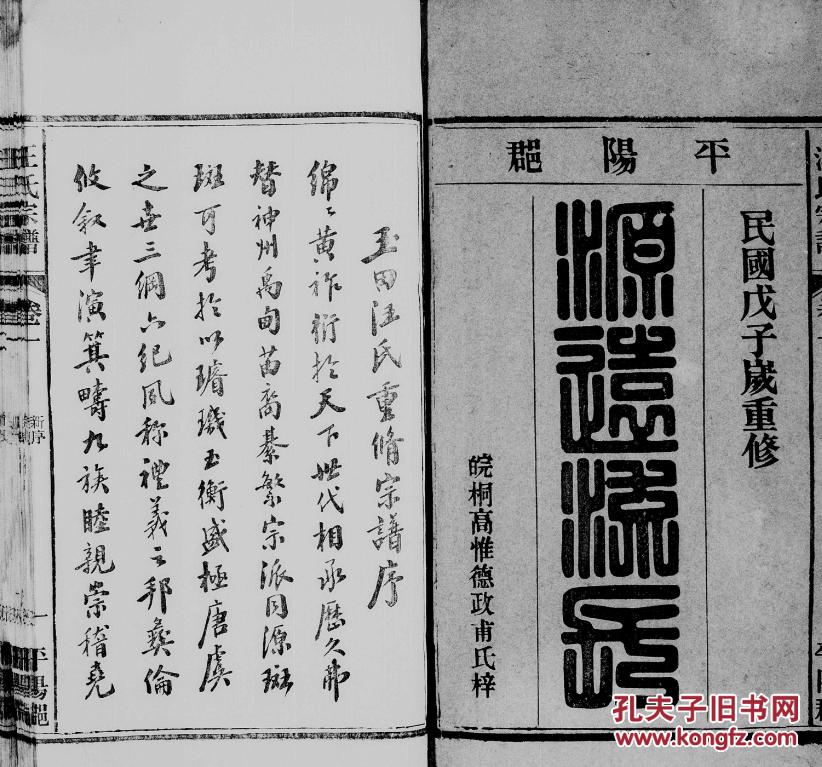 平陽郡
民國戊子歲重修
源遠流長
皖桐高惟德政甫氏梓
玉田汪氏重脩宗譜序
綿〻黃祚衍於天下世代相承歷久弗
替神州禹甸苗裔綦繁宗派同源斑
斑可考於以璿璣玉衡盛極唐虞
之世三綱六紀風称禮義之邦彝倫
攸敘聿演箕疇九族睦親崇稽堯
汪氏宗譜
卷一
新序
一
平陽郡
孔夫子旧书网
www.kongfz.com